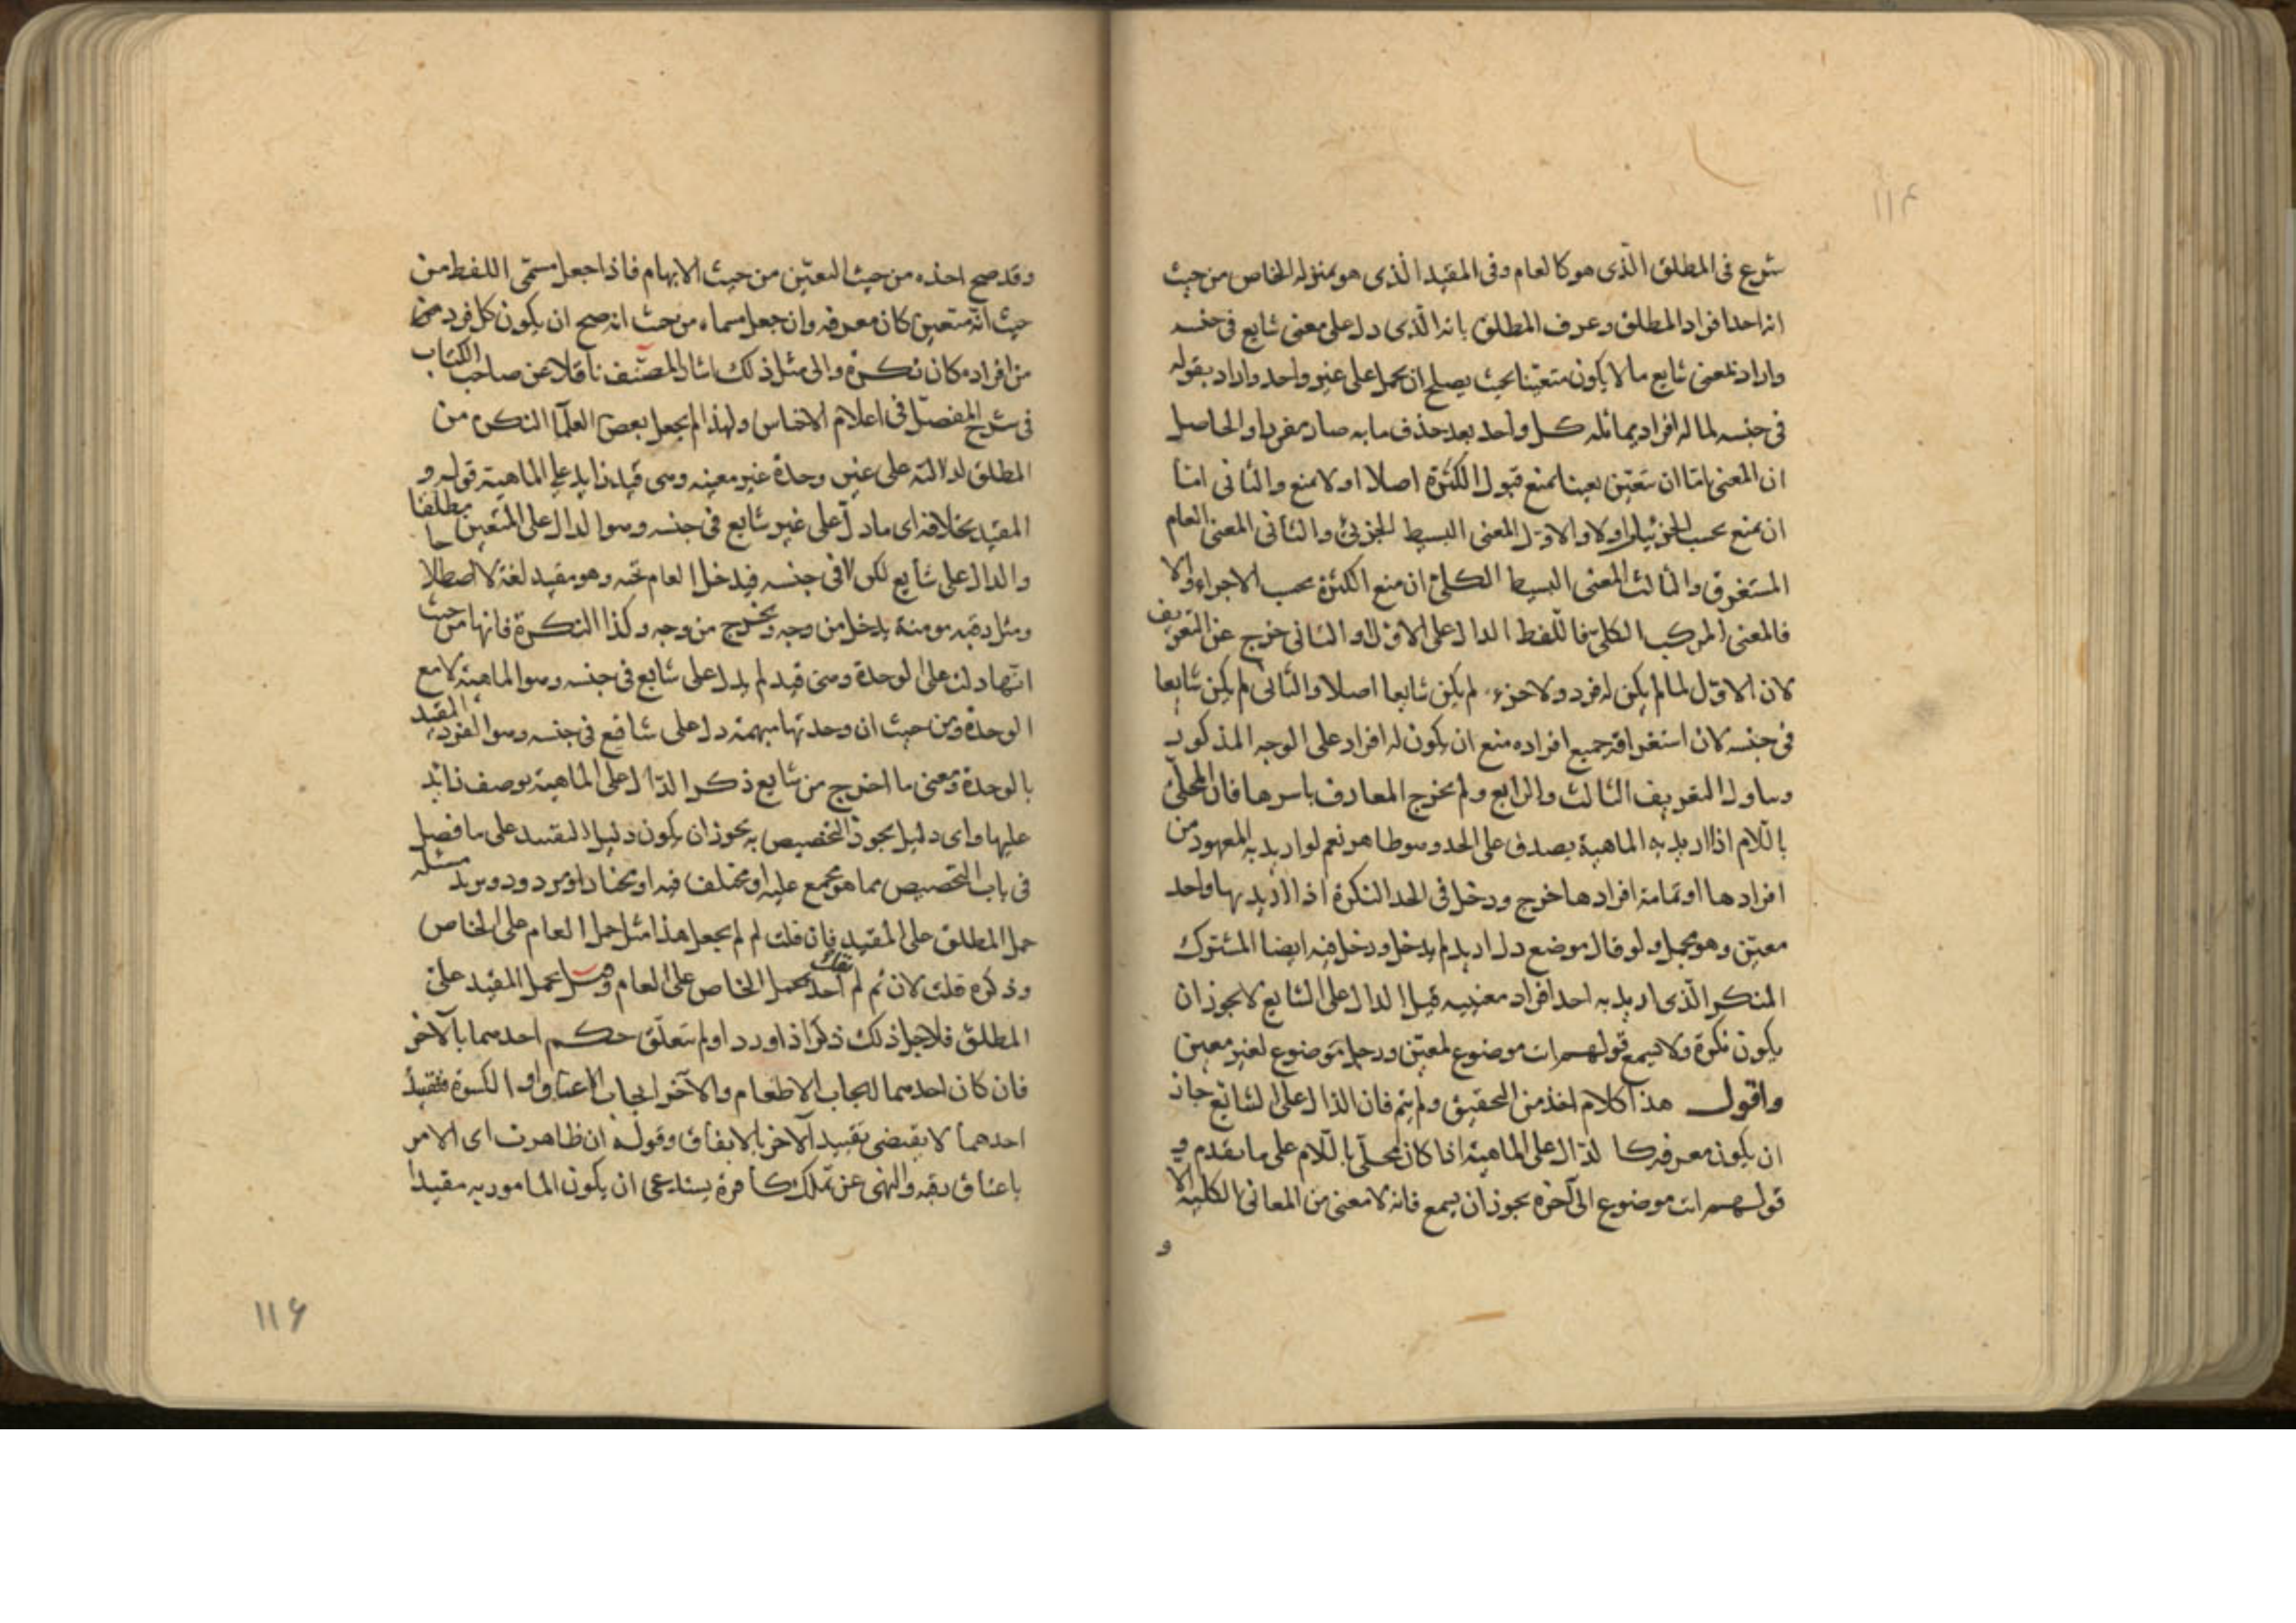 ١١۴
شرع فى المطلق الّذى هو كالعام وفى المقيد الّذى هو بمنزله الخاص من حيث
انه احد افراد المطلق وعرف المطلق بانه الّذى دل على معنى شايع فى جنسه
واراد بمعنى شايع ما لا يكون متعيّنا بحيث يصلح ان يحمل على غير واحد واراد بقوله
فى جنسه لما له افراد يماثله كل واحد بعد حذف ما به صار مفردا والحاصل
ان المعنى امّا ان يتعيّن تعينا يمنع قبول الكثرة اصلا او لا يمنع والثانى امّا
ان يمنع بحسب الجزئيات اولا والاوّل المعنى البسيط الجزئى والثانى المعنى العام
المستغرق والثالث المعنى البسيط الكلى ان منع الكثرة بحسب الاجزاء والا
فالمعنى المركب الكلى فاللّفظ الدال على الاوّل او الثانى خرج عن التعريف
لان الاوّل لما لم يكن له فرد ولا جزء لم يكن شايعا اصلا والثانى لم يكن شايعا
فى جنسه لان استغراقه جميع افراده منع ان يكون له افراد على الوجه المذكور
وتناول التعريف الثالث والرابع ولم يخرج المعارف باسرها فان المحلّى
باللّام اذا اريد به الماهية يصدق على الحد وهو ظاهر نعم لو اريد به المعهود من
افرادها او تمامة افرادها خرج ودخل فى الحد النكرة اذا اريد بها واحد
معيّن وهو مجمل ولو قال موضع دل اريد لم يدخل ودخل فيه ايضا المشترك
المنكر الّذى اريد به احد افراد معنييه قيل الدال على الشايع لا يجوز ان
يكون نكرة ولا يسمع قولهم انت موضوع لمعيّن ورجل موضوع لغير معين
واقول هذا كلام اخذ من التحقيق ولم يتم فان الدال على الشائع جاز
ان يكون معرفه كالدّال على الماهية اذا كان محلّى باللّام على ما تقدم و
قولهم انت موضوع الى آخره يجوز ان يسمع فانه لا معنى من المعانى الكلية الا
و
وقد صح اخذه من حيث التعيّن من حيث الابهام فاذا جعل مسمّى اللفظ من
حيث انّه متعين كان معرفه وان جعل مسماه من حيث انه صح ان يكون كل فرد من
من افراده كان نكرة والى مثل ذلك اشار المصنّف ناقلا عن صاحب الكتاب
فى شرح المفصّل فى اعلام الاجناس ولهذا لم يجعل بعض العلماء النكره من
المطلق لدلالته على غير وحدة غير معينه وهى قيد زايد على الماهية قوله و
المقيد بخلافه اى ما دلّ على غير شايع فى جنسه وهو الدال على المتعين مطلقا
والدال على شايع لكن لا فى جنسه فيدخل العام تحته وهو مقيد لغة لا اصطلاحا
ومثل رقبه مومنة يدخل من وجه ويخرج من وجه وكذا النكرة فانها من حيث
انّها دلت على الوحدة وهى قيد لم يدل على شايع فى جنسه وهو الماهية لا مع
الوحدة ومن حيث ان وحدتها مبهمة دل على شائع فى جنسه وهو الفرد المقيد
بالوحدة ومعنى ما اخرج من شايع ذكر الدّال على الماهية بوصف زائد
عليها واى دليل يجوز التخصيص به يجوز ان يكون دليل التقييد على ما فصل
فى باب التخصيص مما هو مجمع عليه او مختلف فيه او مختار او مردود ويزيد مسئله
حمل المطلق على المقيد فان قلت لم لم يجعل هذا مثل حمل العام على الخاص
وذكره قلت لان ثم لم يقل احد بحمل الخاص على العام وهنا يحمل المقيد على
المطلق فلاجل ذلك ذكر اذا ورد اولم يتعلّق حكم احدهما بالآخر
فان كان احدهما ايجاب الاطعام والآخر ايجاب الاعتاق او الكسوة فتقييد
احدهما لا يقتضى تقييد الآخر بالاتفاق وقوله ان ظاهرت اى الامر
باعتاق رقبه والنهى عن تملك كافرة يستدعى ان يكون المامور به مقيدا
١١۶